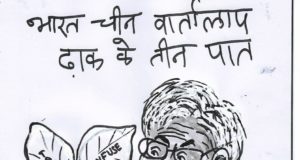 भारत चीन वार्तालाप
ढ़ाक के तीन पात